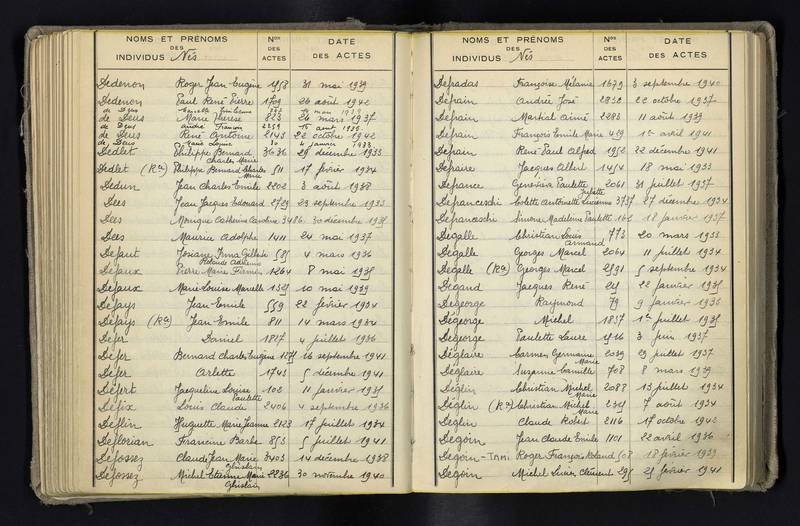 NOMS ET PRÉNOMS
DES
INDIVIDUS Nés
Nos
DES
ACTES
DATE
DES ACTES
Dedenon Roger Jean Eugène 1958 31 mai 1939
Dedenon Paul René Pierre 1709 26 août 1942
de Deus
de Deus Marie Thérèse 223 24 mars 1937
de Deus André François 2259 15 août 1935
de Deus René Antoine 2143 22 octobre 1942
de Deus Marie Louise 30 4 janvier 1933
Dedlet Philippe Bernard 3636 29 décembre 1933
Charles Marie
Dedlet (Ra) Philippe Bernard Charles 511 17 février 1934
Marie
Dedun Jean Charles Emile 2202 3 août 1938
Dees Jean Jacques Edouard 2729 29 septembre 1933
Dees Monique Catherine Caroline 3486 30 décembre 1935
Dees Maurice Adolphe 1411 24 mai 1937
Defaut Josiane 585 4 mars 1936
Defaux Pierre Marie Firmin 1264 8 mai 1935
Defaux Marie Louise Marcelle 1325 10 mai 1939
Defays Jean Emile 559 22 février 1934
Defays (Ra) Jean Emile 811 14 mars 1934
Defer Daniel 1827 4 juillet 1936
Défer Bernard Charles Eugène 16 septembre 1941
Défer Arlette 1743 5 décembre 1941
Défert Jacqueline Louise 102 11 janvier 1935
Paulette
Defix Louis Claude 2406 4 septembre 1936
Deflin Huguette Marie Jeanne 2123 17 juillet 1934
Deflorian Francine Barbe 853 5 juillet 1941
Défossez Claude Jean Marie 3403 14 décembre 1938
Ghislain
Défossez Michel Etienne Marie 2236 30 novembre 1940
Ghislain
NOMS ET PRÉNOMS
DES
INDIVIDUS Nés
Nos
DES
ACTES
DATE
DES ACTES
Defradas Françoise Mélanie 1679 3 septembre 1940
Defrain Andrée José 2830 22 octobre 1937
Defrain Martial Aimé 2283 11 août 1939
Defrain François Emile Marie 419 1er avril 1941
Defrain René Paul Alfred 1952 22 décembre 1941
Defraire Jacques Albert 1454 18 mai 1933
Defrance Geneviève Paulette 2061 31 juillet 1937
Juliette
Defranceschi Colette Antoinette Lucienne 3737 27 décembre 1934
Defranceschi Simone Madeleine Paulette 162 18 janvier 1937
Degalle Christian Louis 773 20 mars 1933
Armand
Degalle Georges Marcel 2064 11 juillet 1934
Degalle (Ra) Georges Marcel 2591 5 septembre 1934
Degand Jacques René 22 janvier 1935
Degeorge Raymond 79 9 janvier 1933
Degeorge Michel 1857 1er juillet 1935
Dégeorge Paulette Laure 1516 3 juin 1937
Déglaire Carmen Germaine 2039 29 juillet 1937
Marie
Déglaire Suzanne Camille 708 8 mars 1939
Déglin Christian Michel 2088 13 juillet 1934
Marie
Déglin (Ra) Christian Michel 7 août 1934
Marie
Déglin Claude Robert 2116 17 octobre 1942
Degoin Jean Claude Emile 1101 22 avril 1936
Degoin-Tami Roger François Roland 508 18 février 1939
Degoin Michel Lucien Clément 25 février 1941